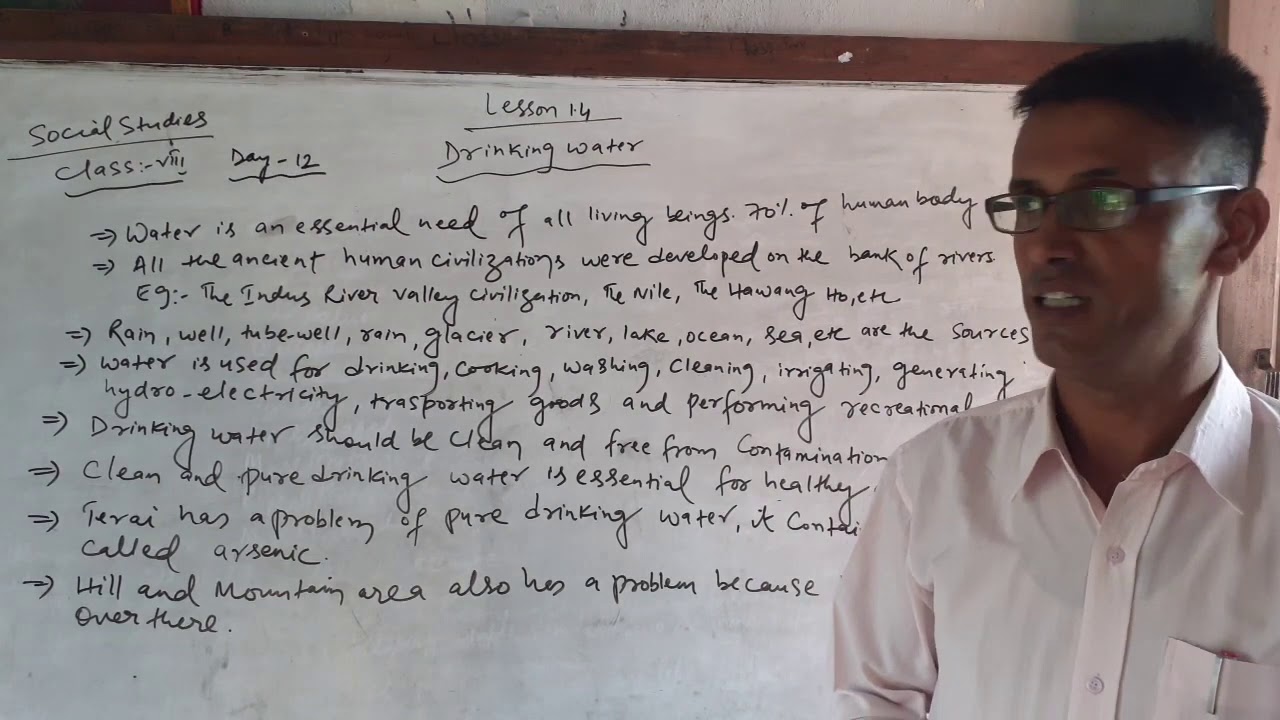 Lesson 1.4
Social Studies
Class:- VIII Day - 12
Drinking water
⇒ Water is an essential need of all living beings. 70% of human body
⇒ All the ancient human civilizations were developed on the bank of rivers
Eg:- The Indus River Valley civilization, The Nile, The Hawang Ho, etc
⇒ Rain, well, tube-well, rain, glacier, river, lake, ocean, sea, etc are the sources
⇒ Water is used for drinking, cooking, washing, cleaning, irrigating, generating
hydro-electricity, trasporting goods and performing recreational
⇒ Drinking water should be clean and free from contamination
⇒ Clean and pure drinking water is essential for healthy
⇒ Terai has a problem of pure drinking water, it
called arsenic.
⇒ Hill and Mountain area also has a problem because
over there.